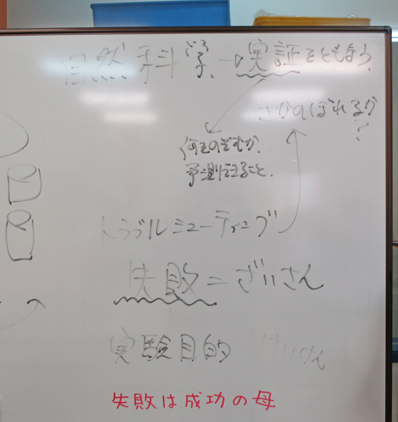 自然科学 → 実証をともなう
さかのぼれるか?
何をのぞむか、
予測できること、
トラブルシューティング
失敗 = ざいさん
実験目的 けいけん
失敗は成功の母